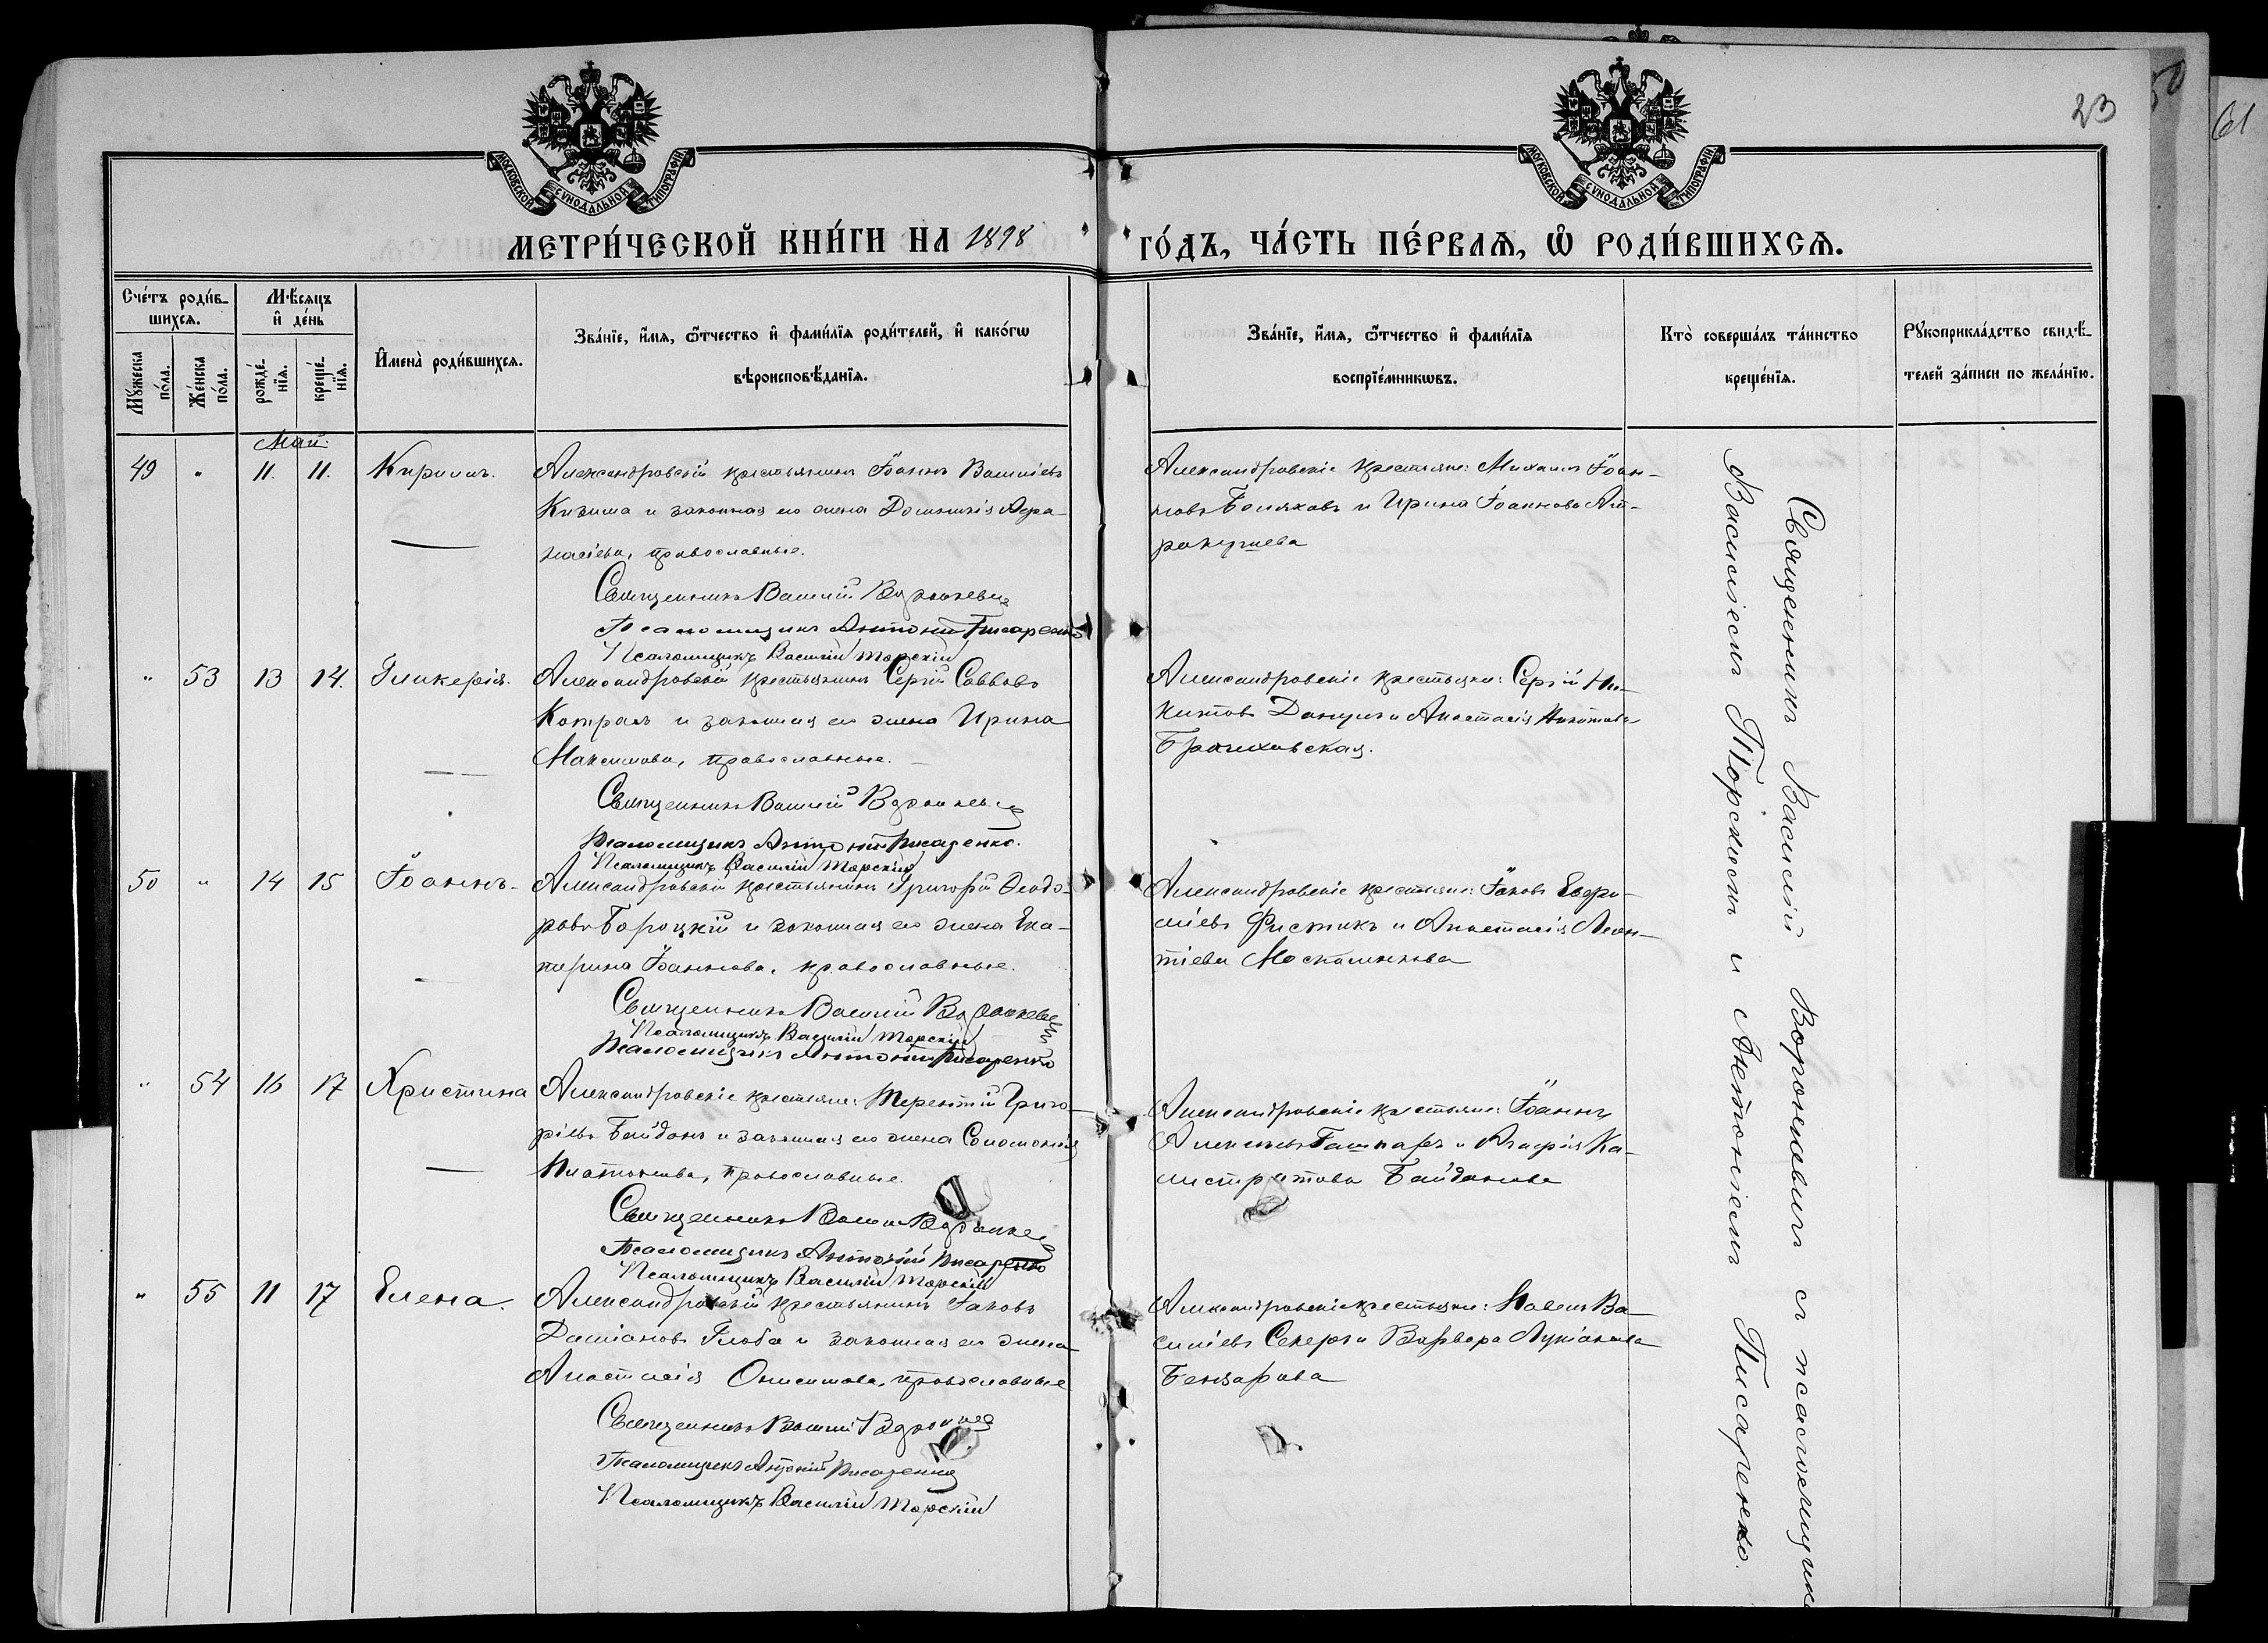 23
61
МОСКОВСКОЙ СУНОДАЛЬНОЙ ТИПОГРАФІИ
МОСКОВСКОЙ СУНОДАЛЬНОЙ ТИПОГРАФІИ
МЕТРИ́ЧЕСКОЙ КНИ́ГИ НА 1898
ГО́ДЪ, ЧА́СТЬ ПЕ́РВАѦ, Ѡ҆ РОДИ́ВШИХСѦ.
Сче́тъ роди́в-
шихсѧ.
Мꙋ́жеска по́ла.
Же́нска по́ла.
Мѣ́сяцъ
и҆ де́нь
рожде́-
нїѧ.
креще́-
нїѧ.
И҆мена̀ роди́вшихсѧ.
Зва́нїе, и҆́мѧ, ѻ҆́тчество и҆ фами́лїѧ роди́телей, и҆ како́гѡ
вѣроисповѣ́данїѧ.
Зва́нїе, и҆́мѧ, ѻ҆́тчество и҆ фами́лїѧ
воспрїе́мникѡвъ.
Кто̀ соверша́лъ та́инство
креще́нїѧ.
Рꙋкоприкла́дство свидѣ́-
телей за́писи по жела́нїю.
Май.
49 " 11. 11. Кириллъ.
Александровскій крестьянинъ Іоаннъ Васильевъ
и законная его жена Домникія Аѳа-
насіева, православные.
Священникъ Василій Воронкевич
Псаломщикъ Антоній Писаренко
Псаломщикъ Василій Торскій
Александровскіе крестьяне: Михаилъ Іоан-
новъ Боляховъ и Ирина Іоаннова
" 53 13 14. Гликерія.
Александровскій крестьянинъ Сергій Саввовъ
и законная его жена Ирина
Максимова, православные.
Священникъ Василій Воронкевич
Псаломщикъ Антоній Писаренко.
Псаломщикъ Василій Торскій
Александровскіе крестьяне: Сергій Ни-
китовъ и Анастасія Никитова
50 " 14 15 Іоаннъ.
Александровскій крестьянинъ Григорій Ѳеодо-
ровъ Бороцкій и законная его жена Ека-
терина Іоаннова, православные.
Священникъ Василій Воронкевич
Псаломщикъ Василій Торскій
Псаломщикъ Антоній Писаренко
Александровскіе крестьяне: Іаковъ Евфи-
міевъ Фистикъ и Анастасія Леон-
тіева Москаленкова
" 54 16 17 Христина
Александровскіе крестьяне: Терентій Григо-
ріевъ Байданъ и законная его жена Соломонія
Платонова, православные.
Священникъ Василій Воронкевич
Псаломщикъ Антоній Писаренко
Псаломщикъ Василій Торскій
Александровскіе крестьяне: Іоаннъ
Алексіевъ Гашпаръ и Агафія Ка-
листратова Байданова
" 55 11 17 Елена.
Александровскій крестьянинъ Іаковъ
Даміановъ Глоба и законная его жена
Анастасія Онисимова, православные
Священникъ Василій Воронкевич
Псаломщикъ Антоній Писаренко
Псаломщикъ Василій Торскій
Александровскіе крестьяне: Павелъ Ва-
силіевъ и Варвара Лукіанова
Бензарова
Священникъ Василій Воронкевич с псаломщик
Василіем Торским и Антоніем Писаренко.